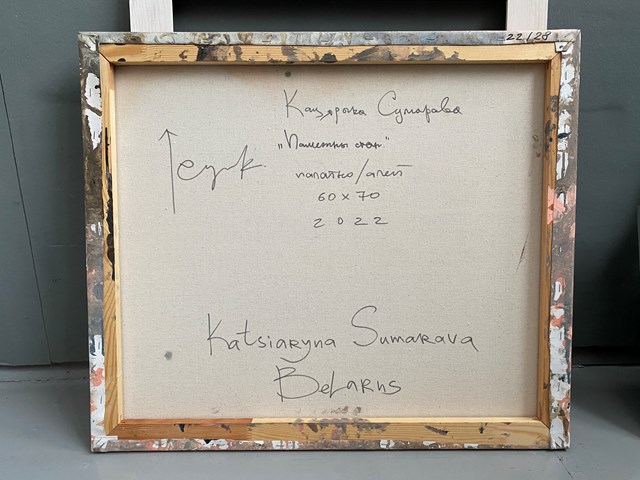 22/28
Кацярына Сумарава
„Памежны стан"
палатно/алей
60 x 70
2022
Katsiaryna Sumarava
Belarus